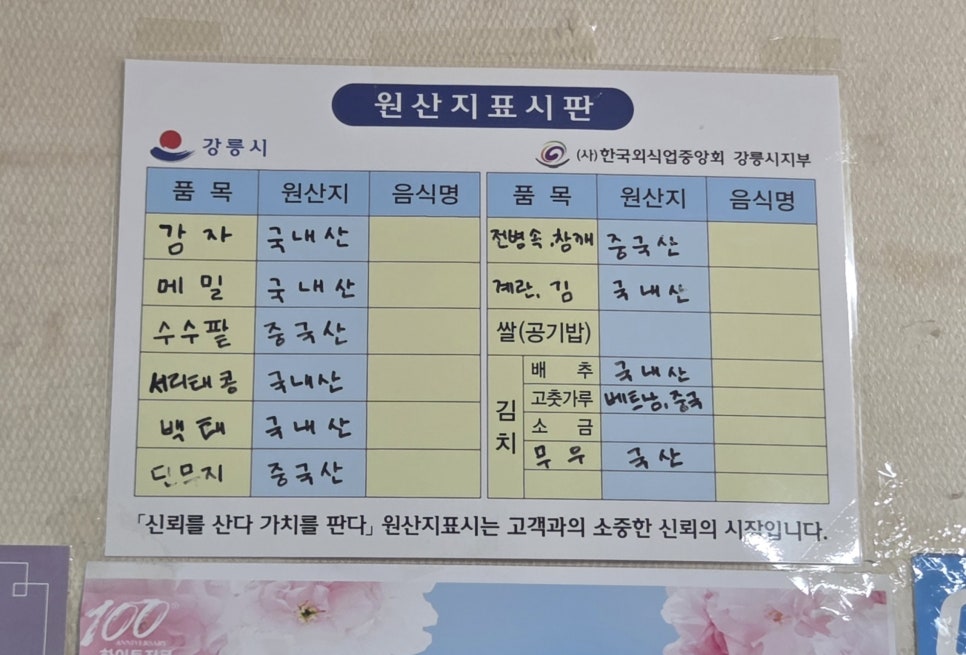 원산지표시판
강릉시
(사)한국외식업중앙회 강릉시지부
품 목 원산지 음식명
감자 국내산
메밀 국내산
수수팥 중국산
서리태콩 국내산
백태 국내산
단무지 중국산
품 목 원산지 음식명
전병속,참깨 중국산
계란, 김 국내산
쌀(공기밥)
김치
배 추 국내산
고춧가루 베트남,중국
소 금
무우 국산
「신뢰를 산다 가치를 판다」 원산지표시는 고객과의 소중한 신뢰의 시작입니다.
100
ANNIVERSARY
하이트진로